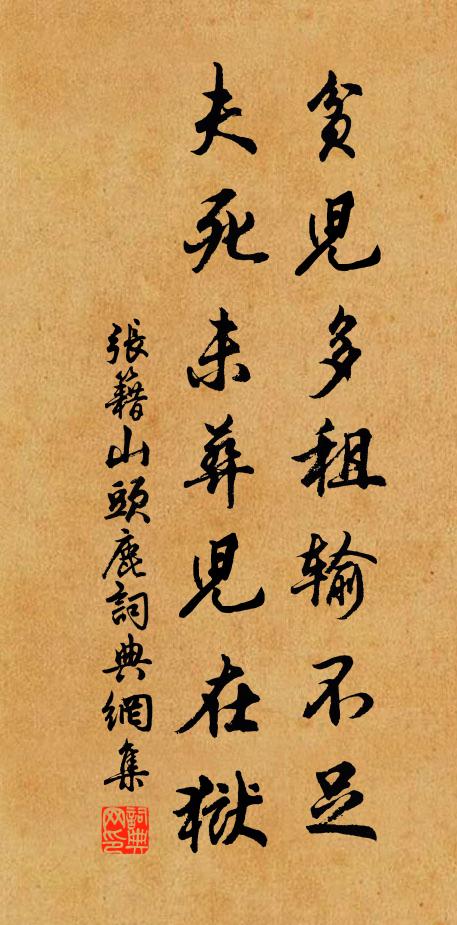 貧兒多租輸不足
夫死未葬兒在獄
張籍山頭鹿詞典網集
詞典网印